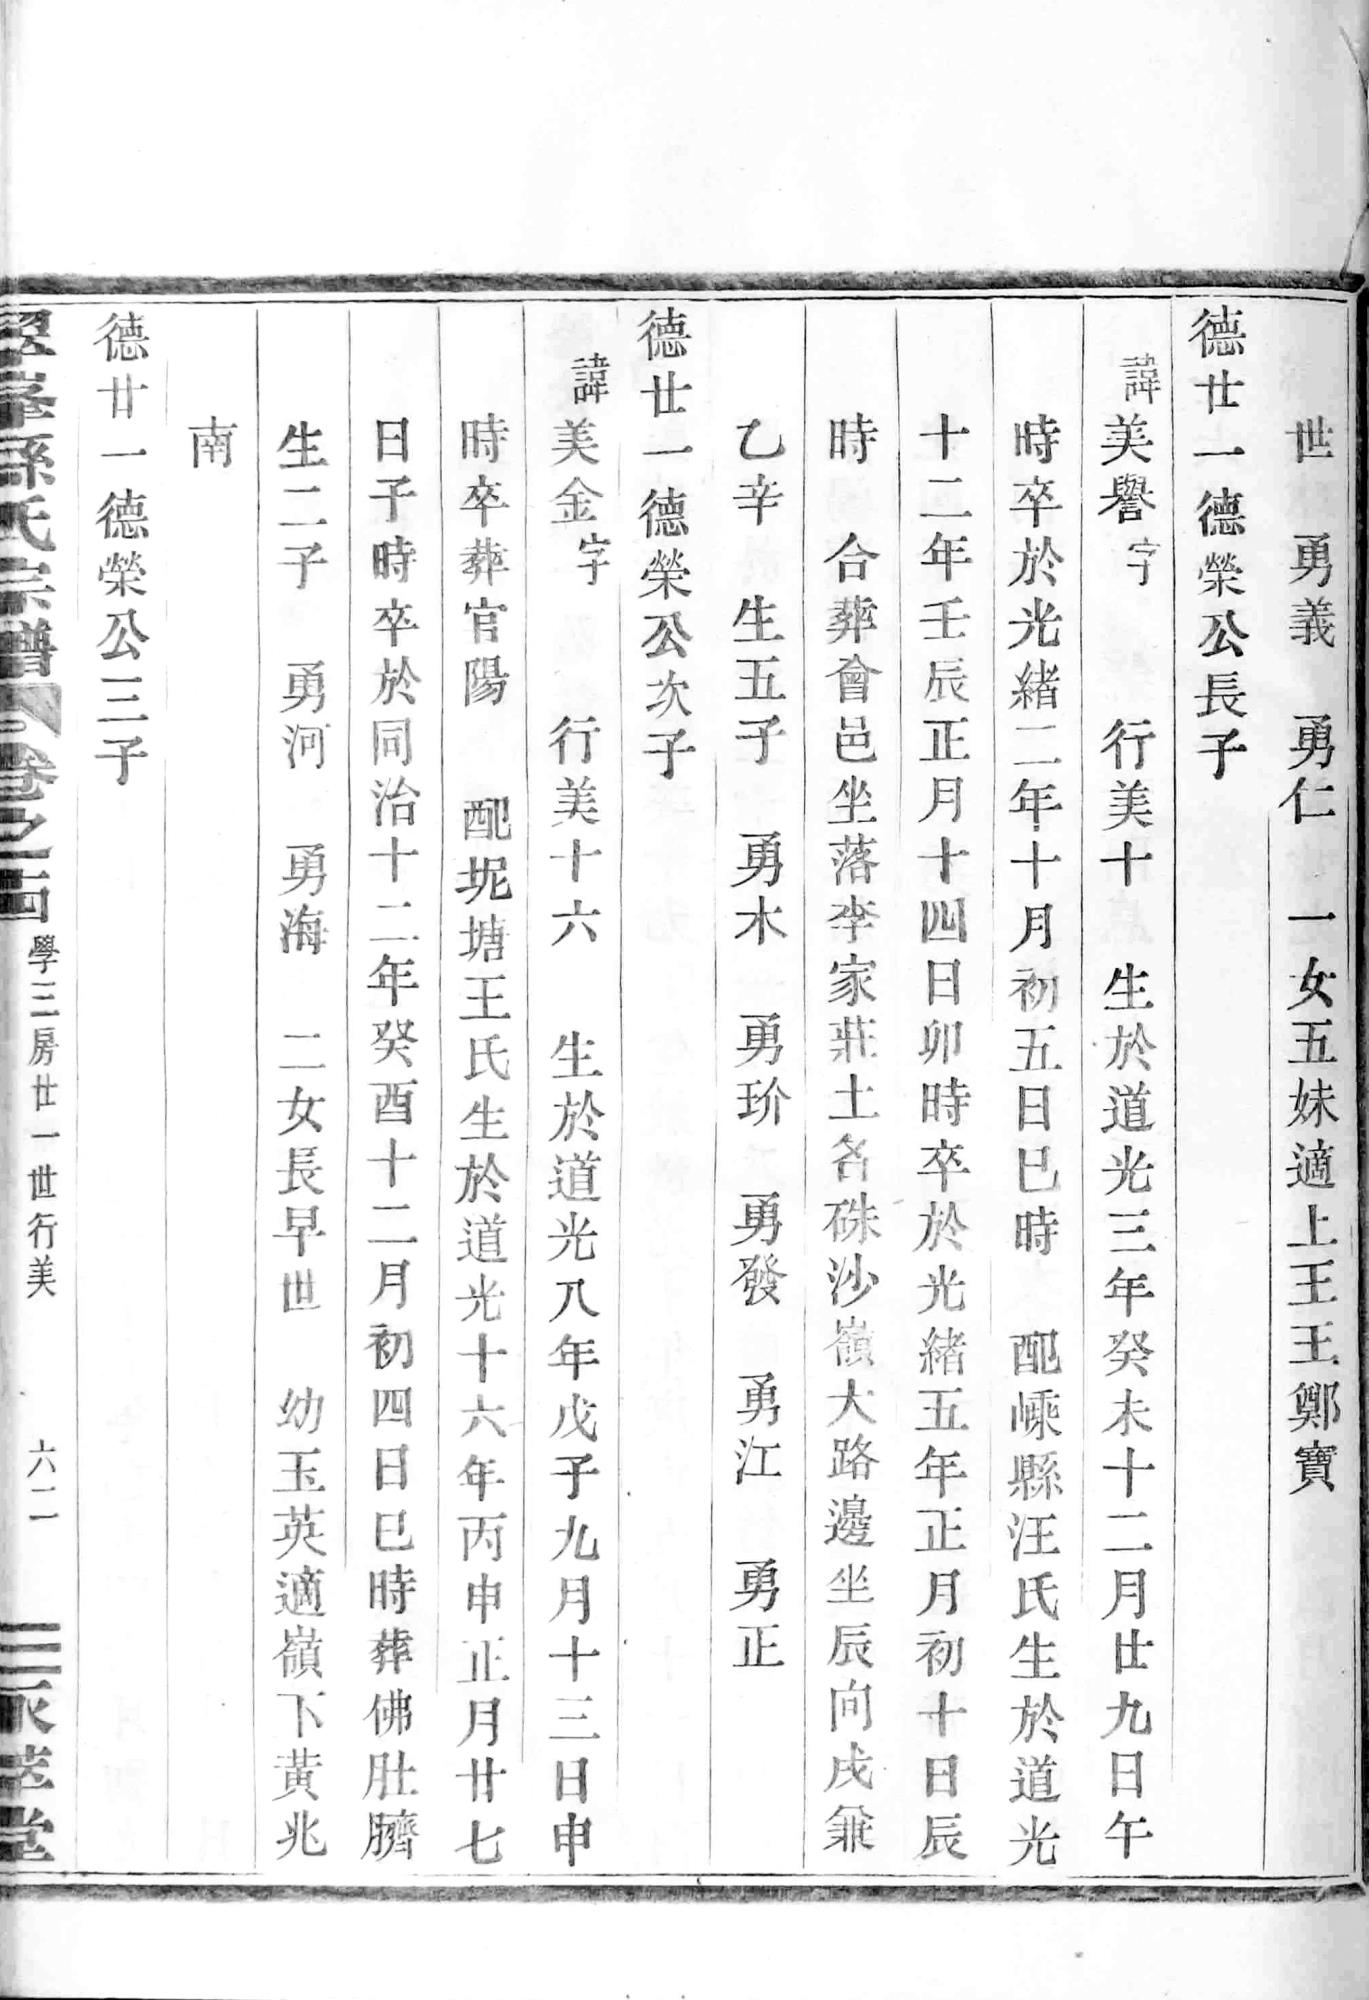 世　勇義　勇仁　一女五妹適上王王鄭寶
德廿一德榮公長子
諱美譽字　　行美十　生於道光三年癸未十二月廿九日午
時卒於光緒二年十月初五日巳時　配嵊縣汪氏生於道光
十二年壬辰正月十四日卯時卒於光緒五年正月初十日辰
時　合葬會邑坐落李家莊土名硃沙嶺大路邊坐辰向戌兼
乙辛　生五子　勇木　勇玠　勇發　勇江　勇正
德廿一德榮公次子
諱美金字　　行美十六　生於道光八年戊子九月十三日申
時卒葬官陽　配坭塘王氏生於道光十六年丙申正月廿七
日子時卒於同治十二年癸酉十二月初四日巳時葬佛肚臍
生二子　勇河　勇海　二女長早世　幼玉英適嶺下黃兆
南
德廿一德榮公三子
孫氏宗譜　卷之十四　學三房廿一世行美　六二